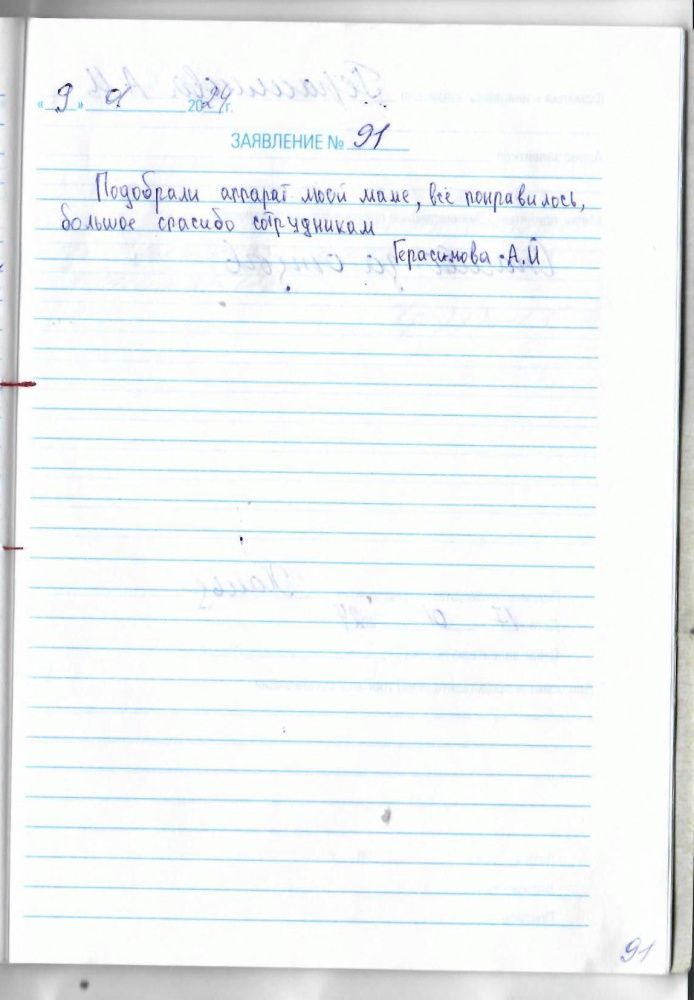 «9» 01 2024г.
ЗАЯВЛЕНИЕ № 91
Подобрали аппарат моей маме, всё понравилось,
большое спасибо сотрудникам
Герасимова А.Й
91